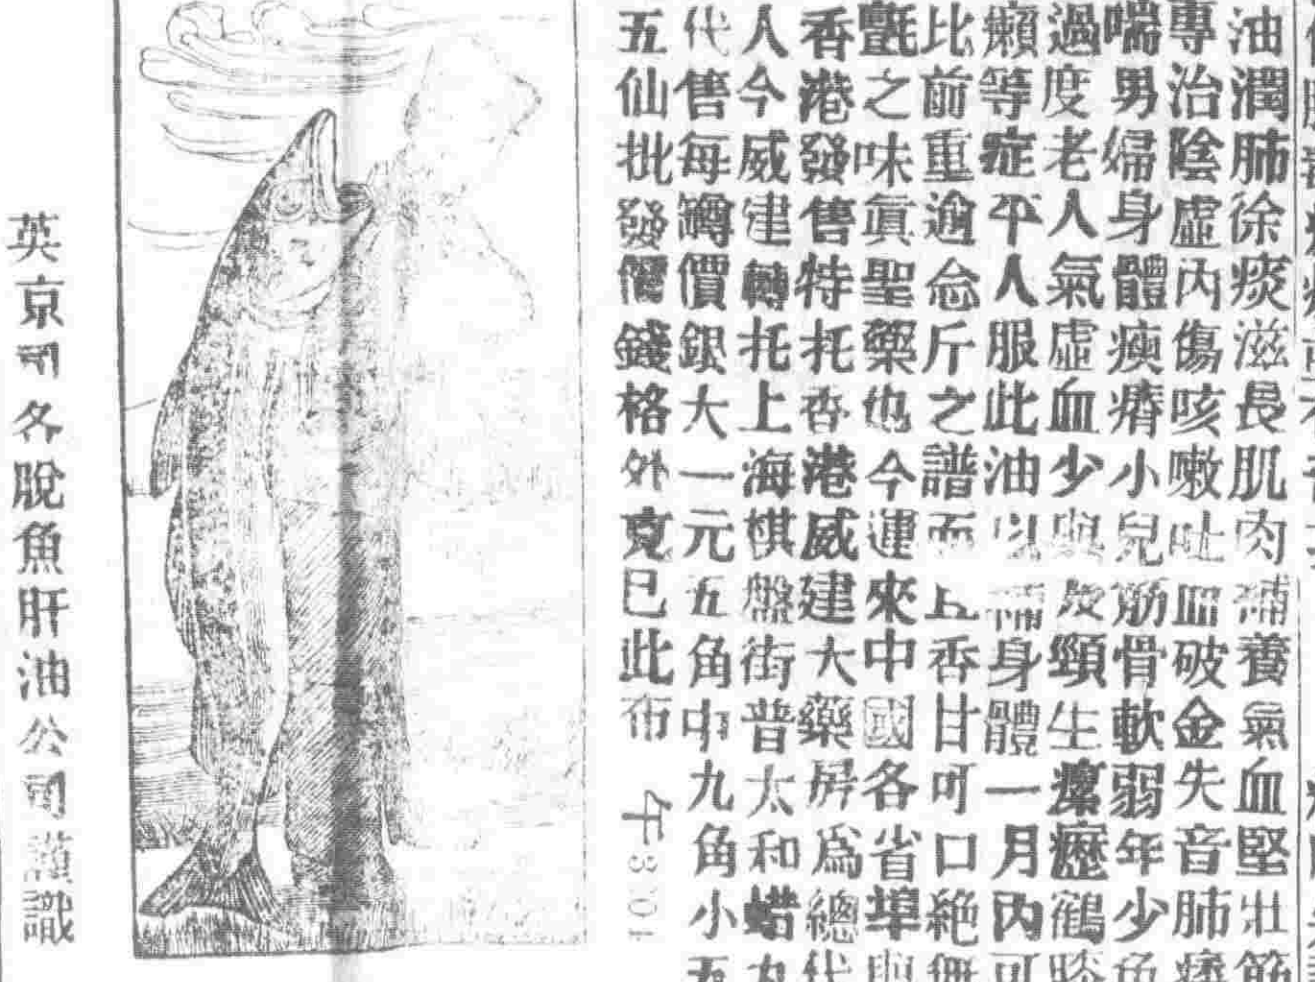 油潤肺徐痰滋長肌肉補養氣血堅壯筋
專治陰虛內傷咳嗽吐血破金失音肺痿
喘男婦身體瘐瘠小兒筋骨軟弱年少色
過度老人氣虛血少與及頸生瘰癧鶴膝
癩等症平人服此油以補身體一月內可
比前重逾念斤之譜而且香甘可口絕無
氈之味眞聖藥也今運來中國各省埠
香港發售特托香港威建大藥房爲總代
人今威建轉托上海棋盤街普太和蜡丸
代售每罇價銀大一元五角中九角小五
五仙批發價錢格外克已此布
英京司各脫魚肝油公司謹識